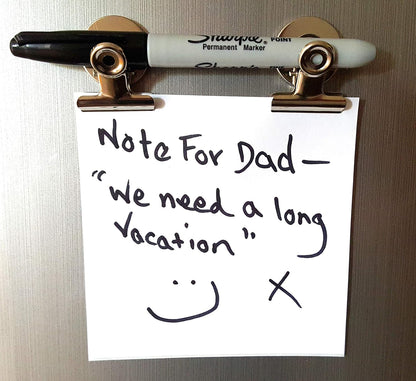 Sharpie
FINE POINT
Permanent Marker
Note For Dad —
"We need a long
Vacation"
X